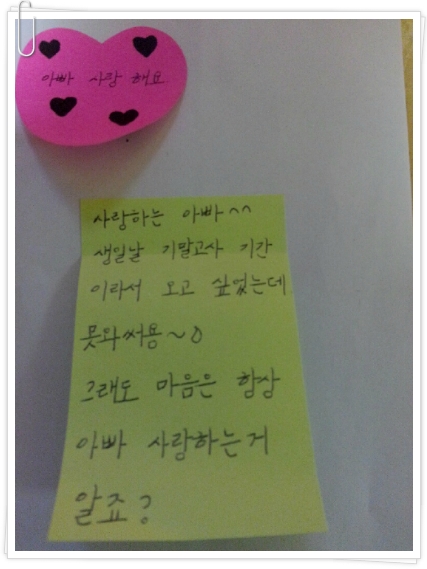 아빠 사랑 해요
사랑하는 아빠^^
생일날 기말고사 기간
이라서 오고 싶었는데
못와써용~
그래도 마음은 항상
아빠 사랑하는거
알죠?